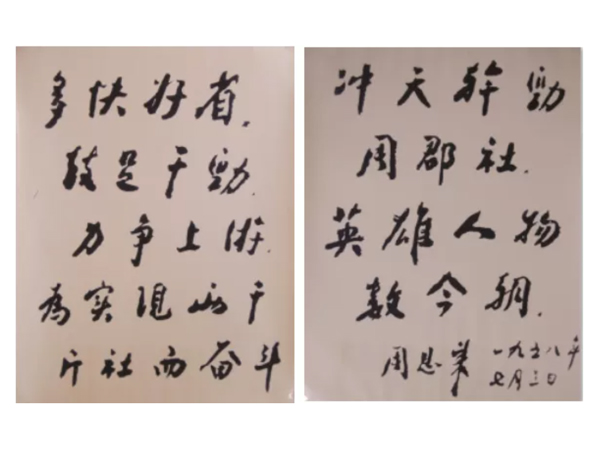 多快好省，
鼓足干勁，
力争上游，
為实現两千
斤社而奋斗
冲天幹勁
周郡社，
英雄人物
数今朝，
周恩来 一九五八年
七月三日